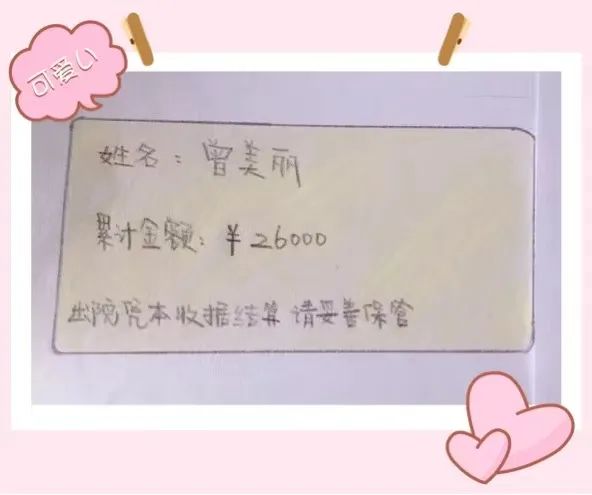 可爱い
姓名：曾美丽
累计金额：￥26000
出院凭本收据结算 请妥善保管